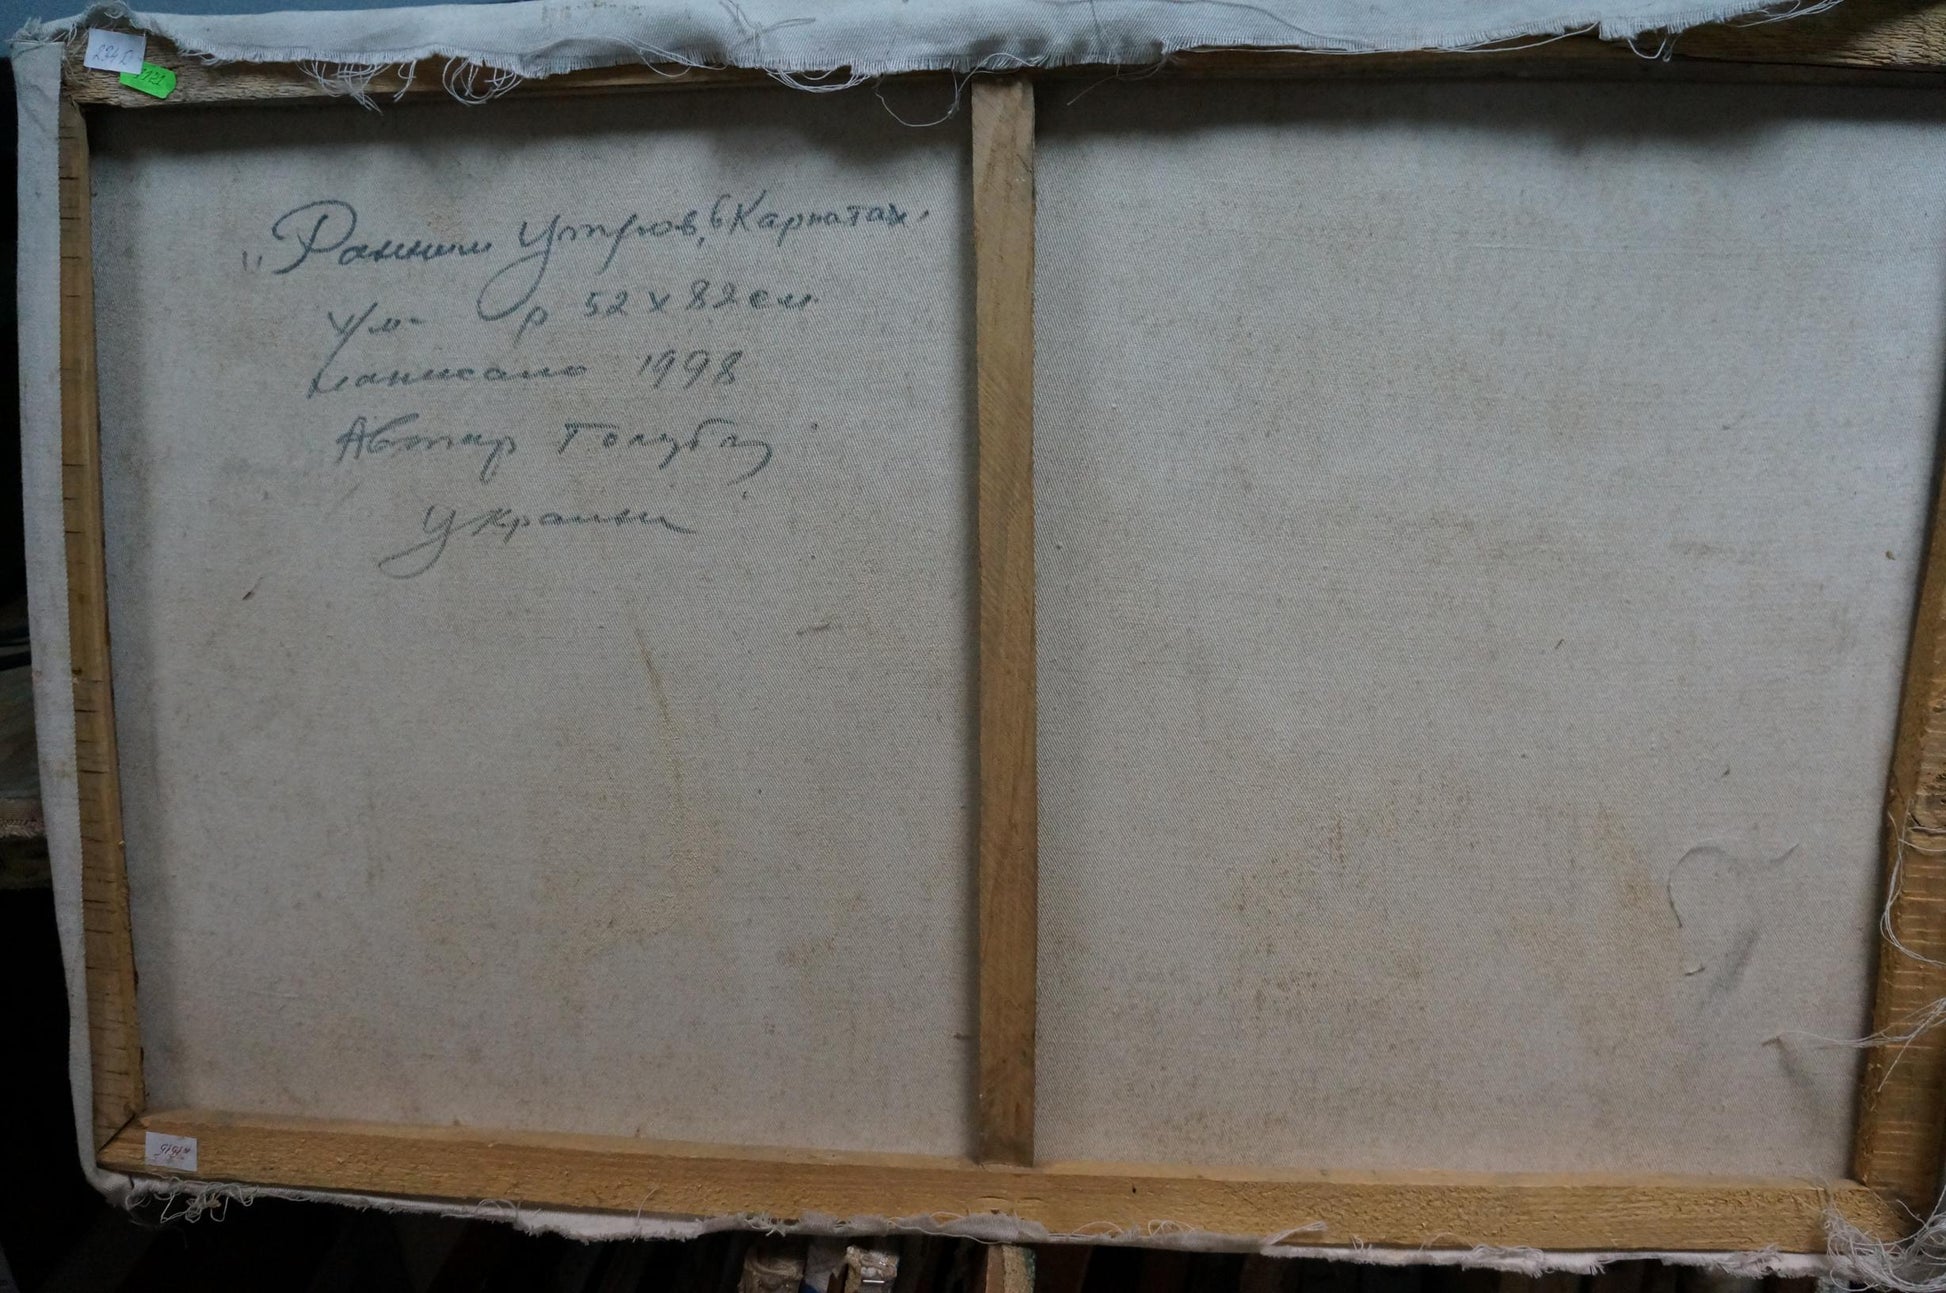 „Ранним Утром, в Карпатах"
х/м- р 52 х 82 см
написано 1998
Автор Голубь
Украина